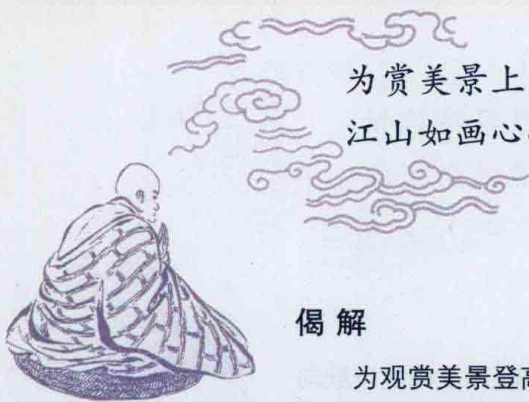 为赏美景上
江山如画心
偈解
为观赏美景登高